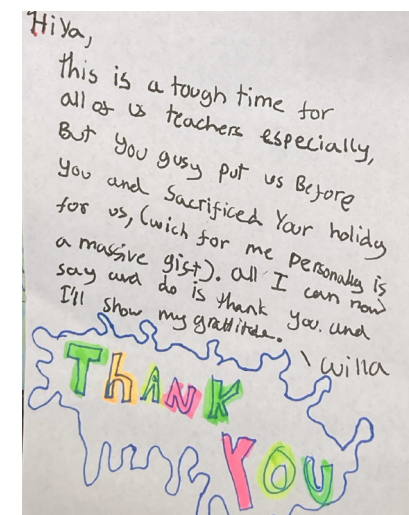 HiYa,
this is a tough time for
all of us teachers especially,
But you gusy put us Before
you and Sacrificed Your holiday
for us, (wich for me personally is
a massive gist). all I can now
say and do is thank you. and
I'll show my gratitude.
\ Willa
THANK
YOU